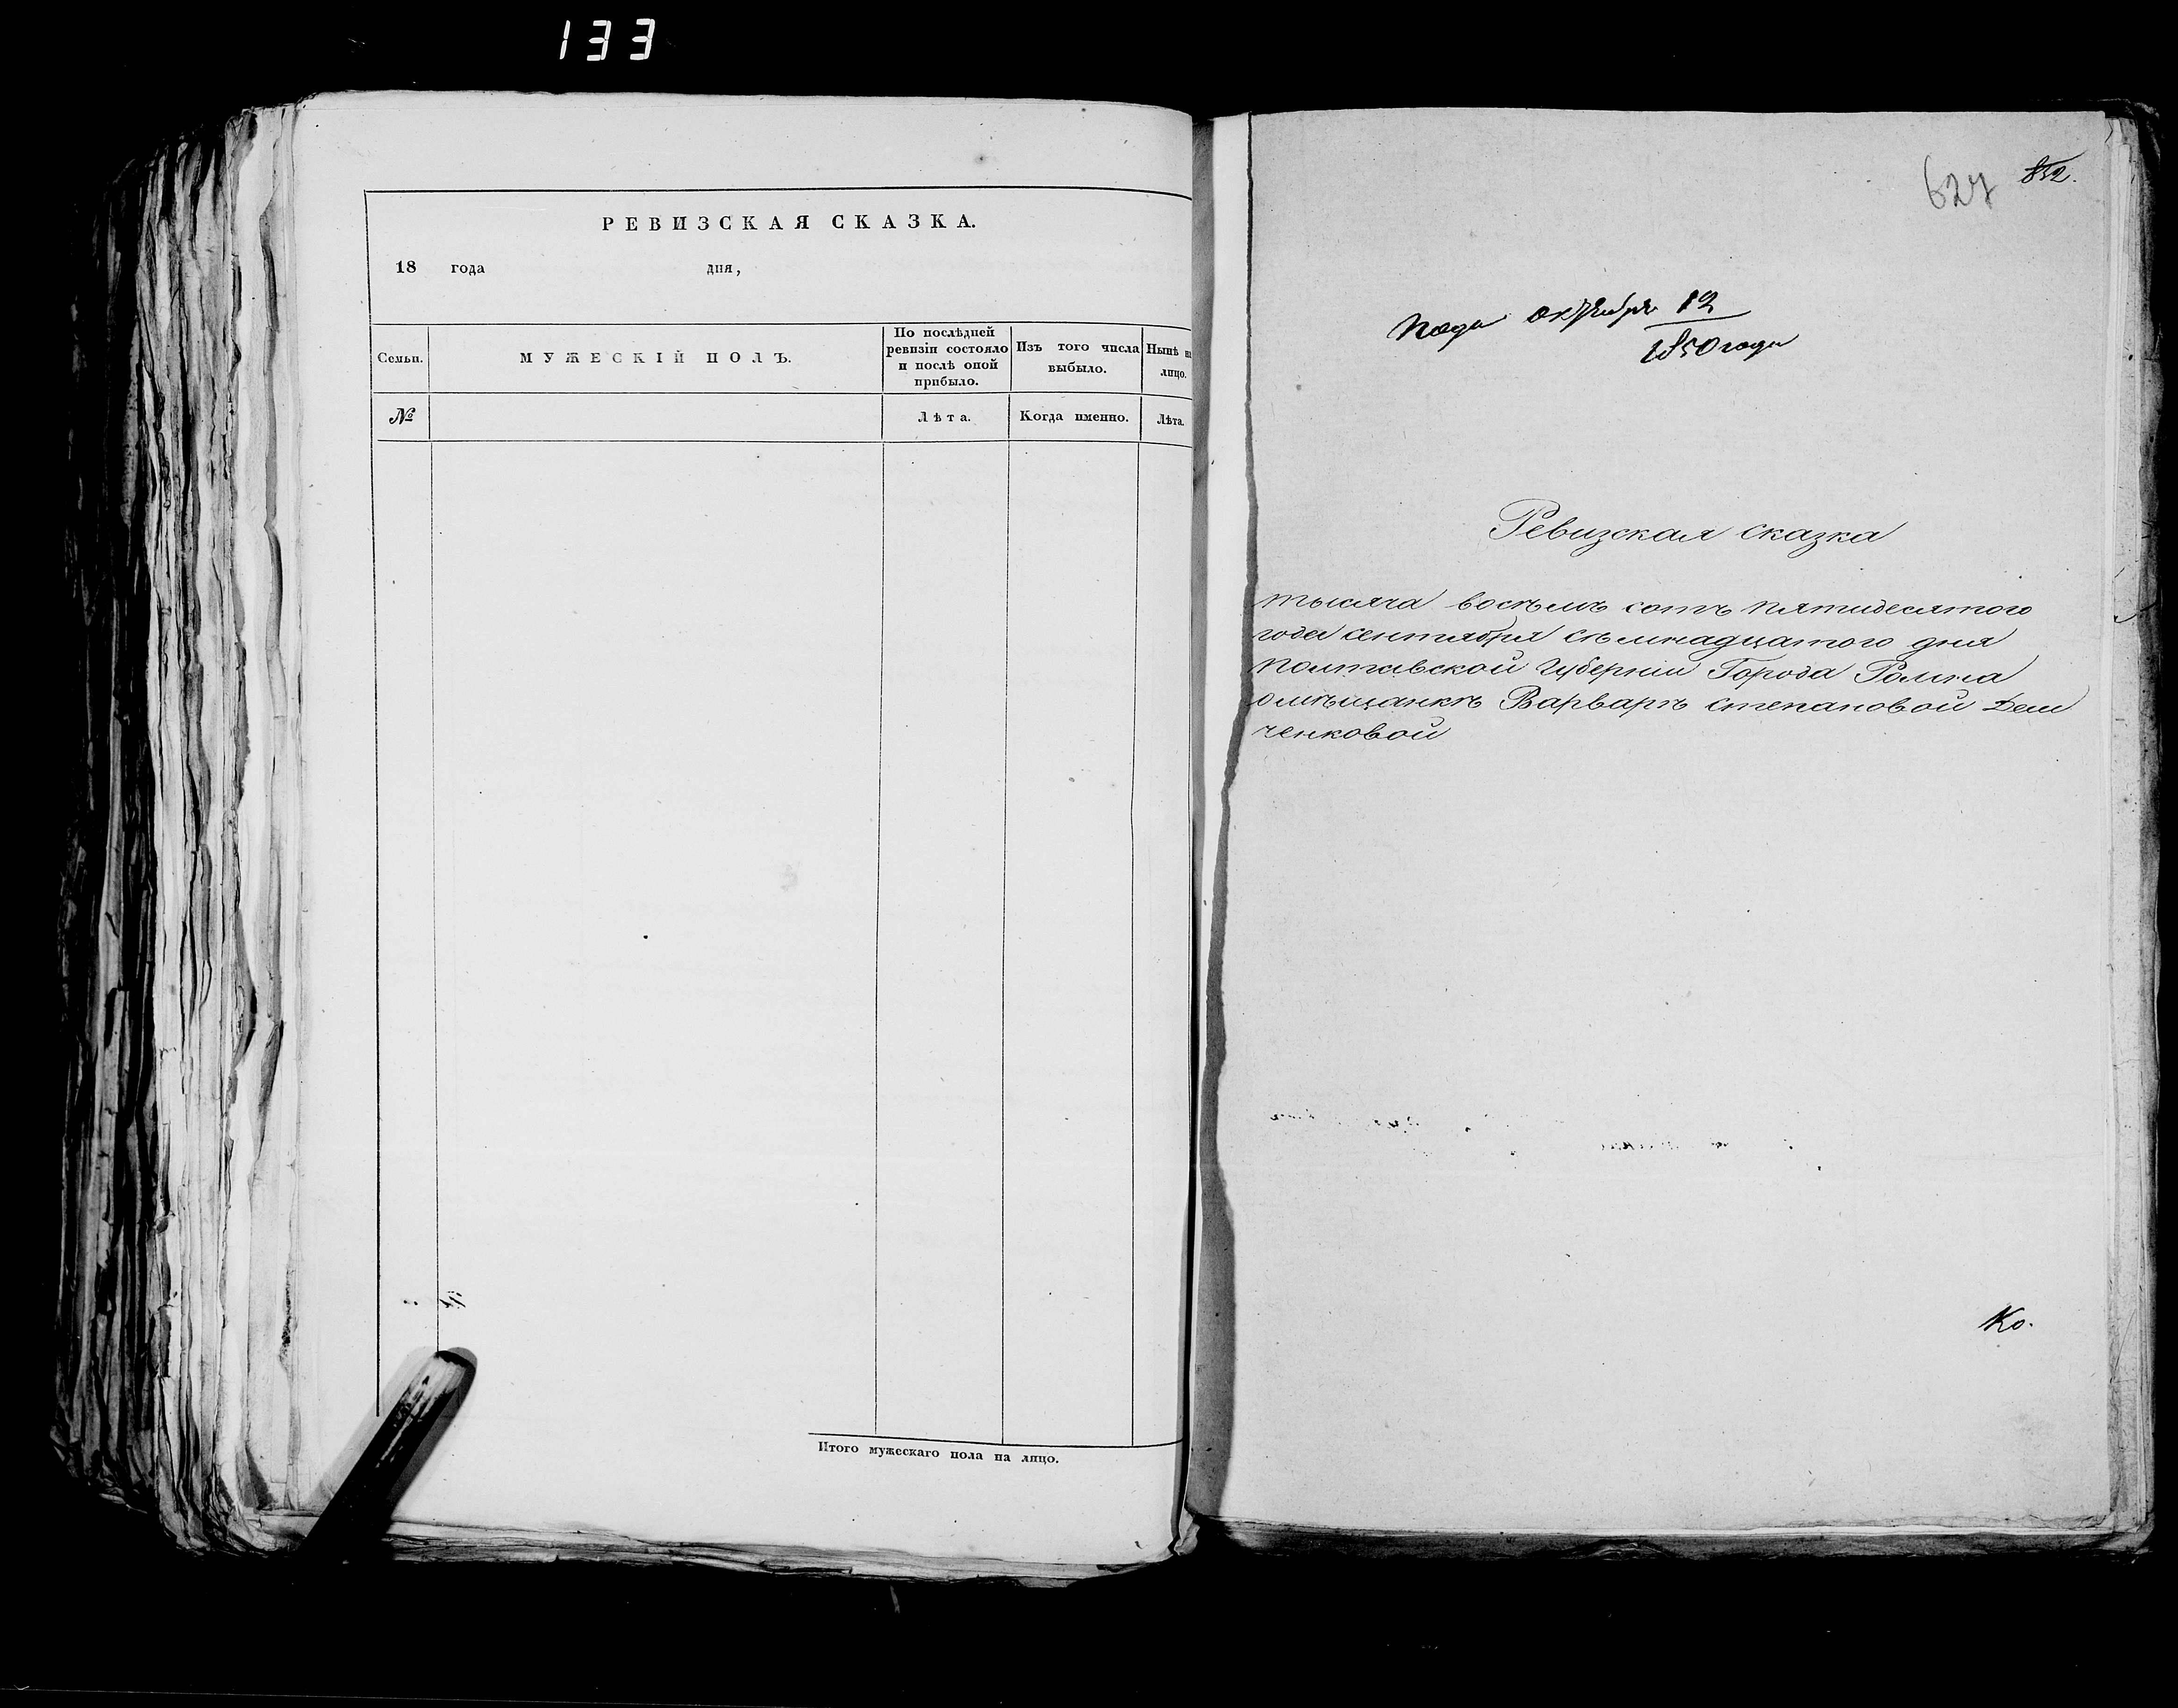 133
РЕВИЗСКАЯ СКАЗКА.
18 года дня,
Семьи.
МУЖЕСКІЙ ПОЛЪ.
По послѣдней ревизіи состояло и послѣ оной прибыло.
Изъ того числа выбыло.
Нынѣ на лицо.
№
Лѣта.
Когда именно.
Лѣта.
Итого мужескаго пола на лицо.
627 852.
октября 12
1850 года
Ревизская сказка
тысяча восѣмъ сотъ пятидесятого
года сентября сѣмнадцатого дня
Полтавской Губерніи Города Ромна
омѣщанкѣ Варварѣ Степановой Дем
ченковой
Ко.